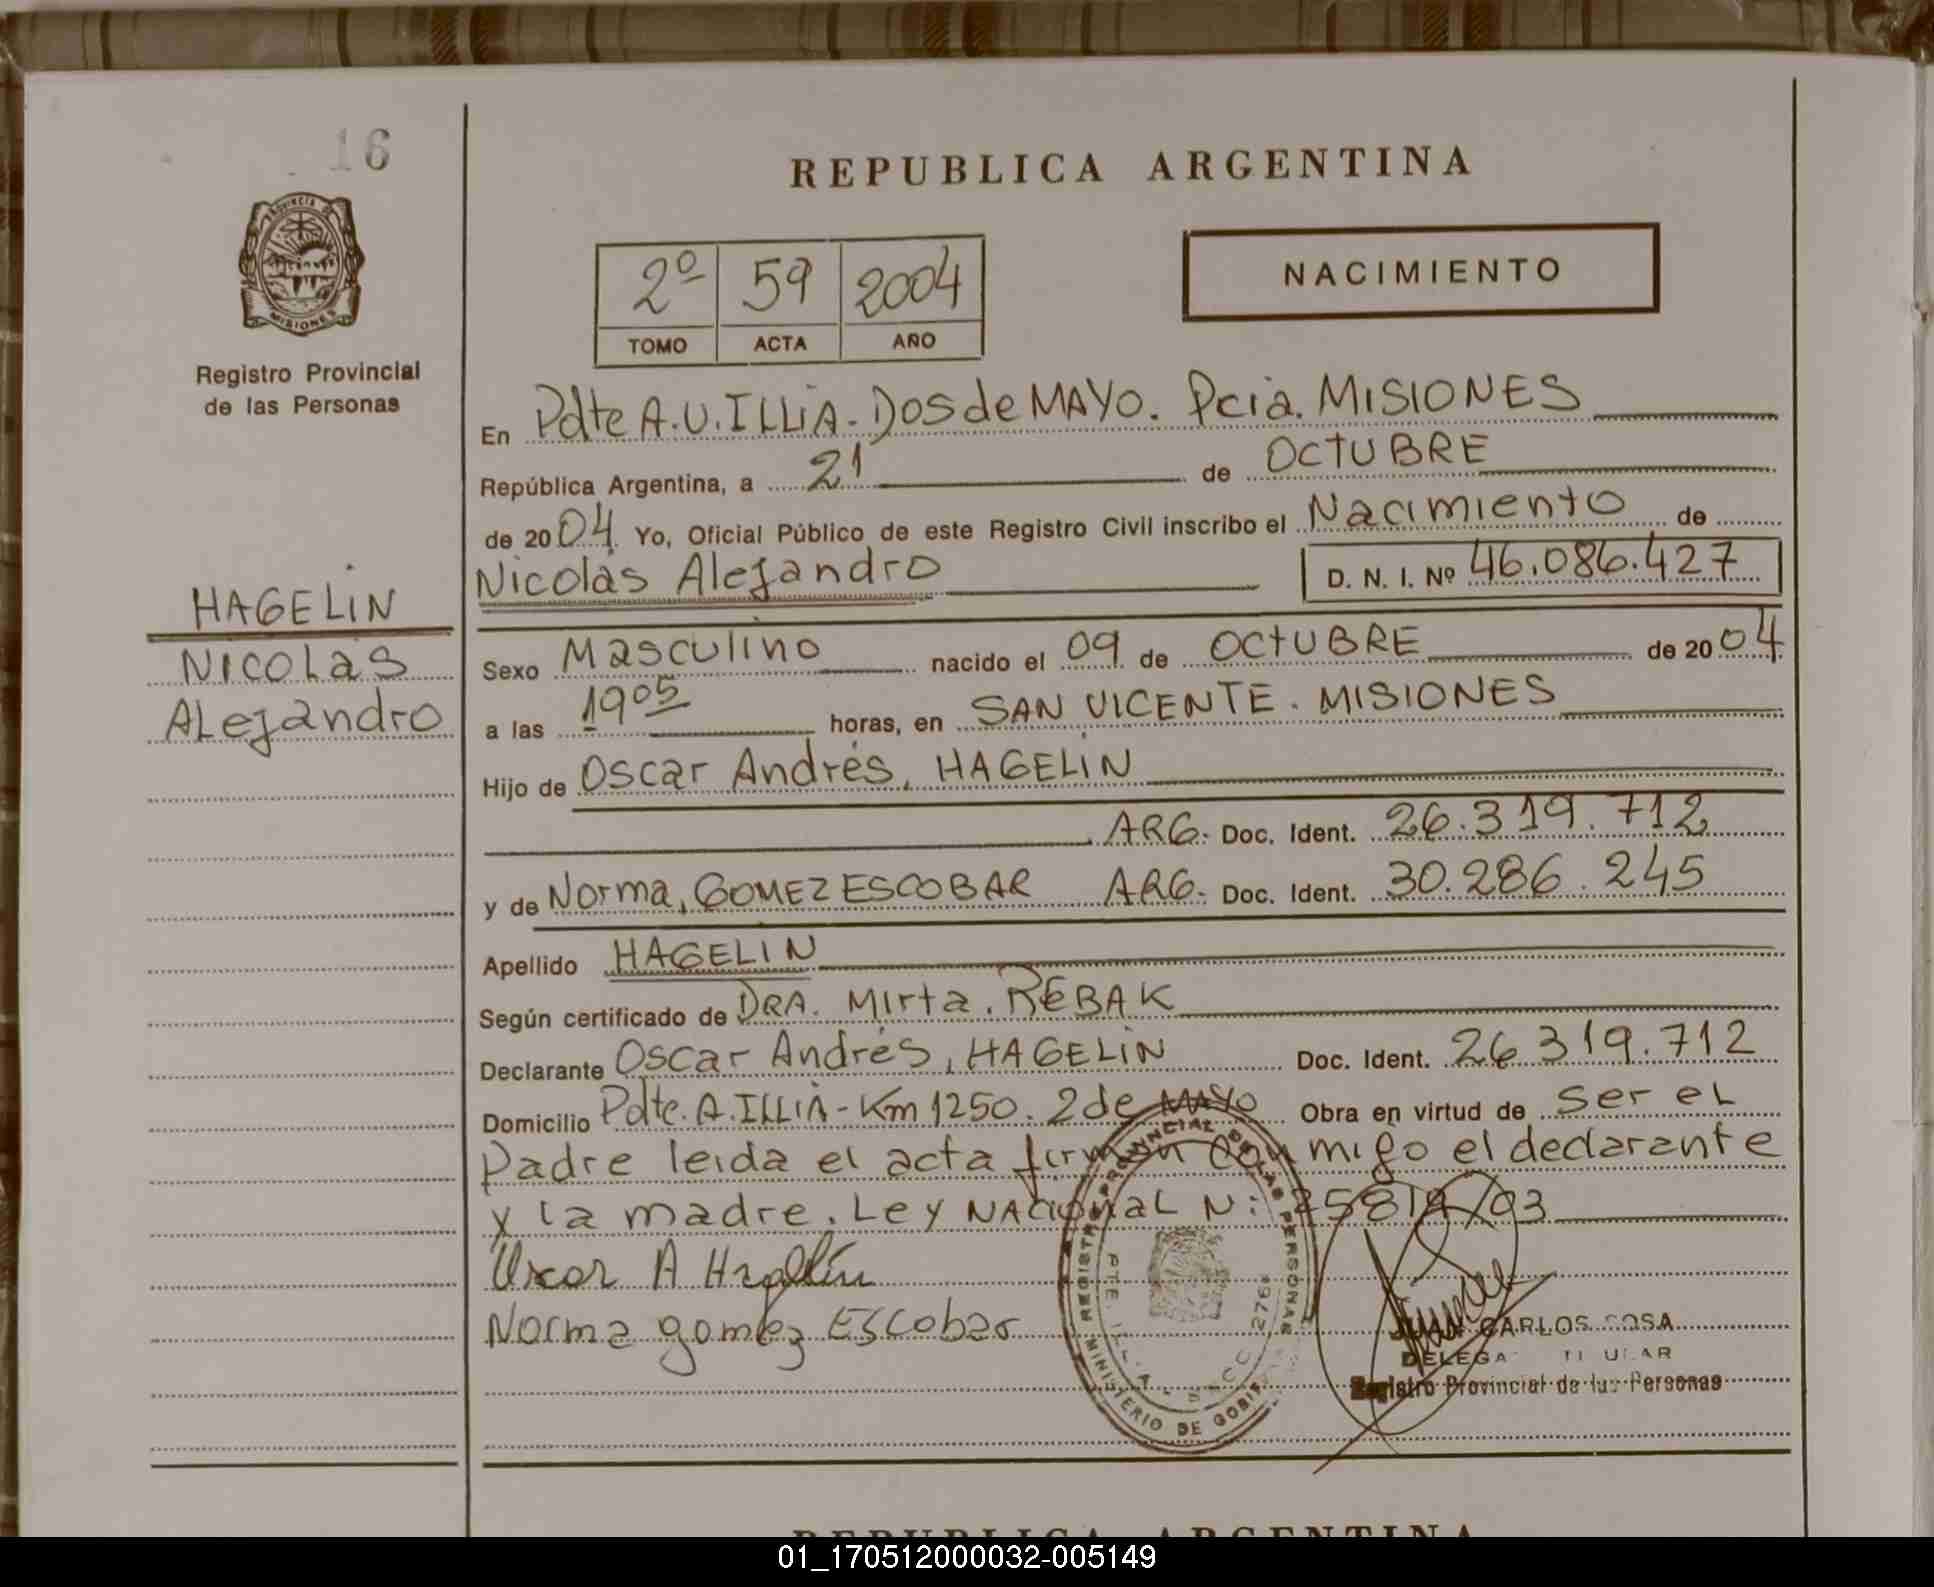 16
REPUBLICA ARGENTINA
PROVINCIA DE
MISIONES
Registro Provincial
de las Personas
2º 59 2004
TOMO ACTA AÑO
NACIMIENTO
En Pdte A.U.ILLIA-DOS de MAYO. Pcia. MISIONES
República Argentina, a 21 de OCTUBRE
de 2004 Yo, Oficial Público de este Registro Civil inscribo el Nacimiento de
Nicolás Alejandro D. N. I. Nº 46.086.427
HAGELIN
NICOLAS
ALejandro
Sexo Masculino nacido el 09 de OCTUBRE de 2004
a las 19 05 horas, en SAN VICENTE. MISIONES
Hijo de Oscar Andrés, HAGELIN
ARG. Doc. Ident. 26.319.712
y de Norma, GOMEZ ESCOBAR ARG. Doc. Ident. 30.286.245
Apellido HAGELIN
Según certificado de DRA. Mirta. REBAK
Declarante Oscar Andrés, HAGELIN Doc. Ident. 26.319.712
Domicilio Pdte. A. ILLIA-Km 1250. 2 de MAYO Obra en virtud de ser eL
Padre leida el acta firman con migo el declarante
y La madre. Ley NAcionaL N: 25819/03
Oscar A Hagelin
Norma gomez Escobar
REGISTRO PROVINCIAL DE LAS PERSONAS
MINISTERIO DE GOBI
PTE. ILLIA - SECC 276
JUAN CARLOS SOSA
DELEGA TITULAR
Registro Provincial de las Personas
REPUBLICA ARGENTINA
01_170512000032-005149